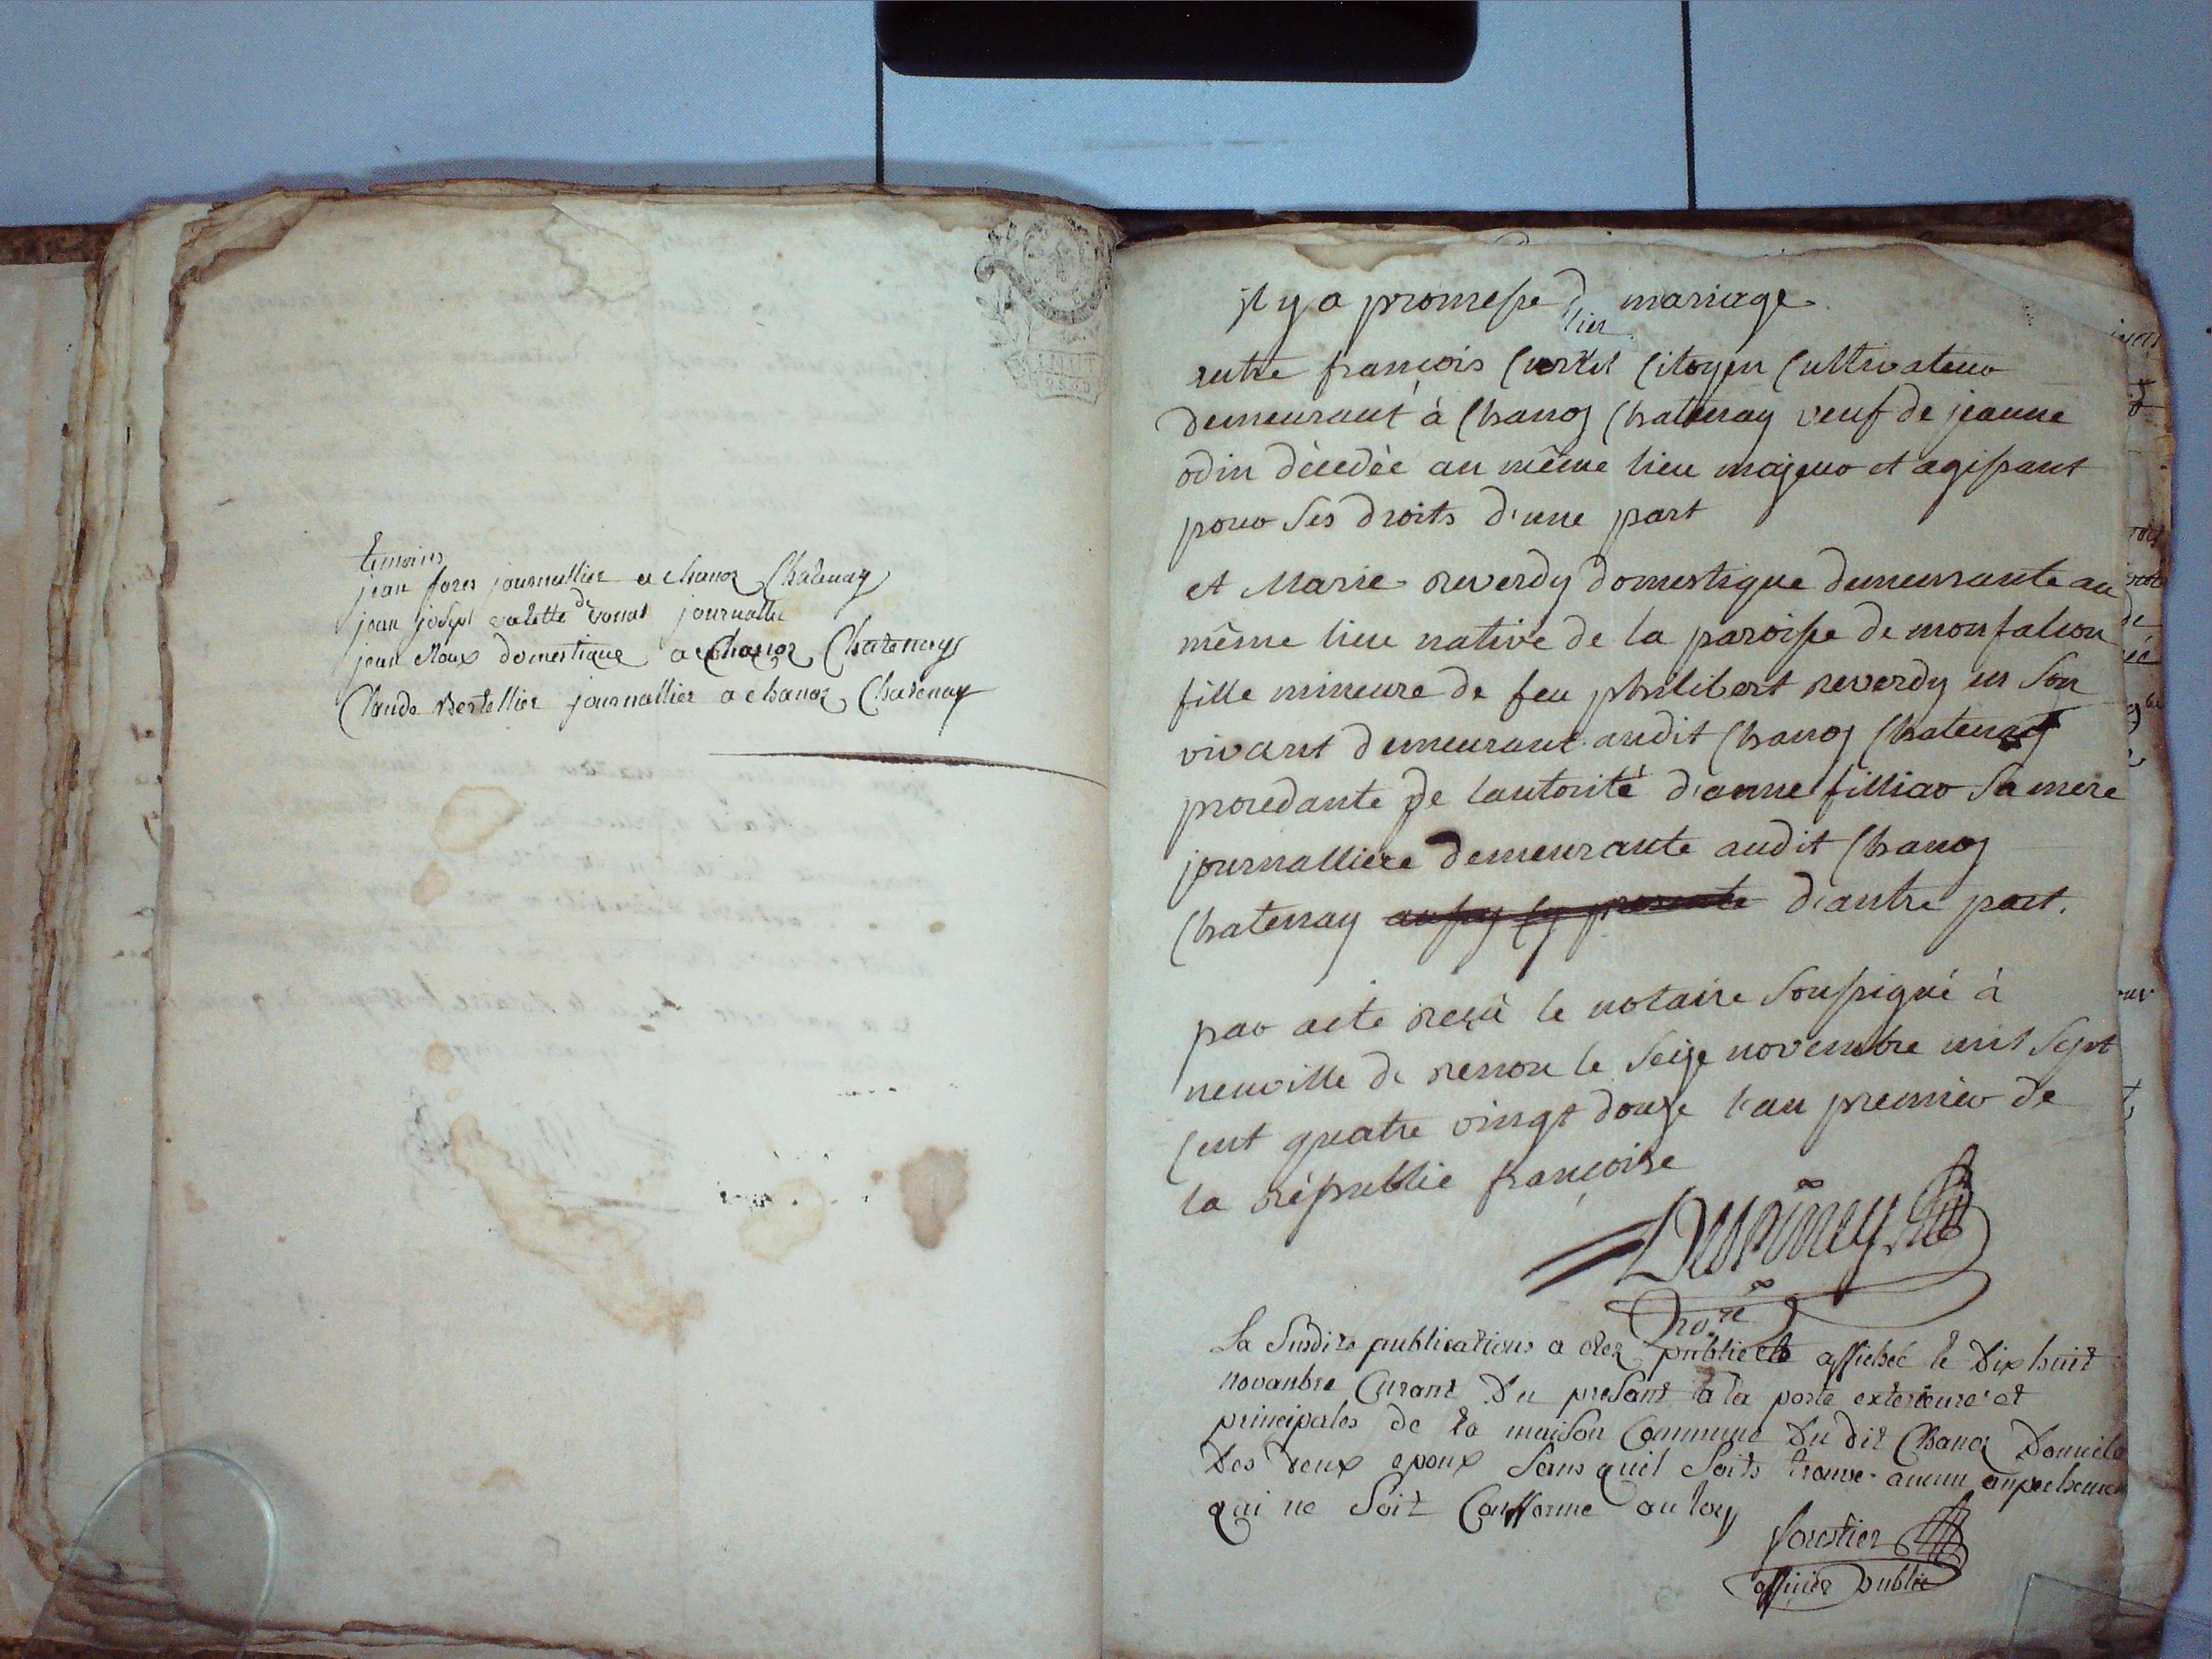 temoins
jean fores journallier a chanoz Chatenay
jean joseph valette de vonas journallie
jean Roux domestique a Chanoz Chatenay
Claude Bertellier journallier a chanoz Chatenay
il y a promesse de mariage
entre françois Citoyen Cultivateur
demeurant à Chanoz Chatenay veuf de jeanne
odin décédée au même lieu majeur et agissant
pour ses droits d'une part
et Marie reverdy domestique demeurante au
même lieu native de la paroisse de monfalcon
fille mineure de feu philibert reverdy en son
vivant demeurant audit Chanoz Chatenay
procedante de lautorité d'anne filliar sa mere
journalliere demeurante audit Chanoz
Chatenay aussy cy presente d'autre part.
par acte reçu le notaire soussigné à
neuville de renon le seize novembre mil sept
cent quatre vingt douze l'an premier de
la républic françoise
no.re
la susdite publications a etez publié et affiché le dix huit
novanbre Curant du presant a la porte exterieure et
principales de la maison Commune du dit Chanoz Domicile
des deux epoux sans quil soits trouve aucun anpechemen
qui ne soit Confforme au loy
forestier
officier public